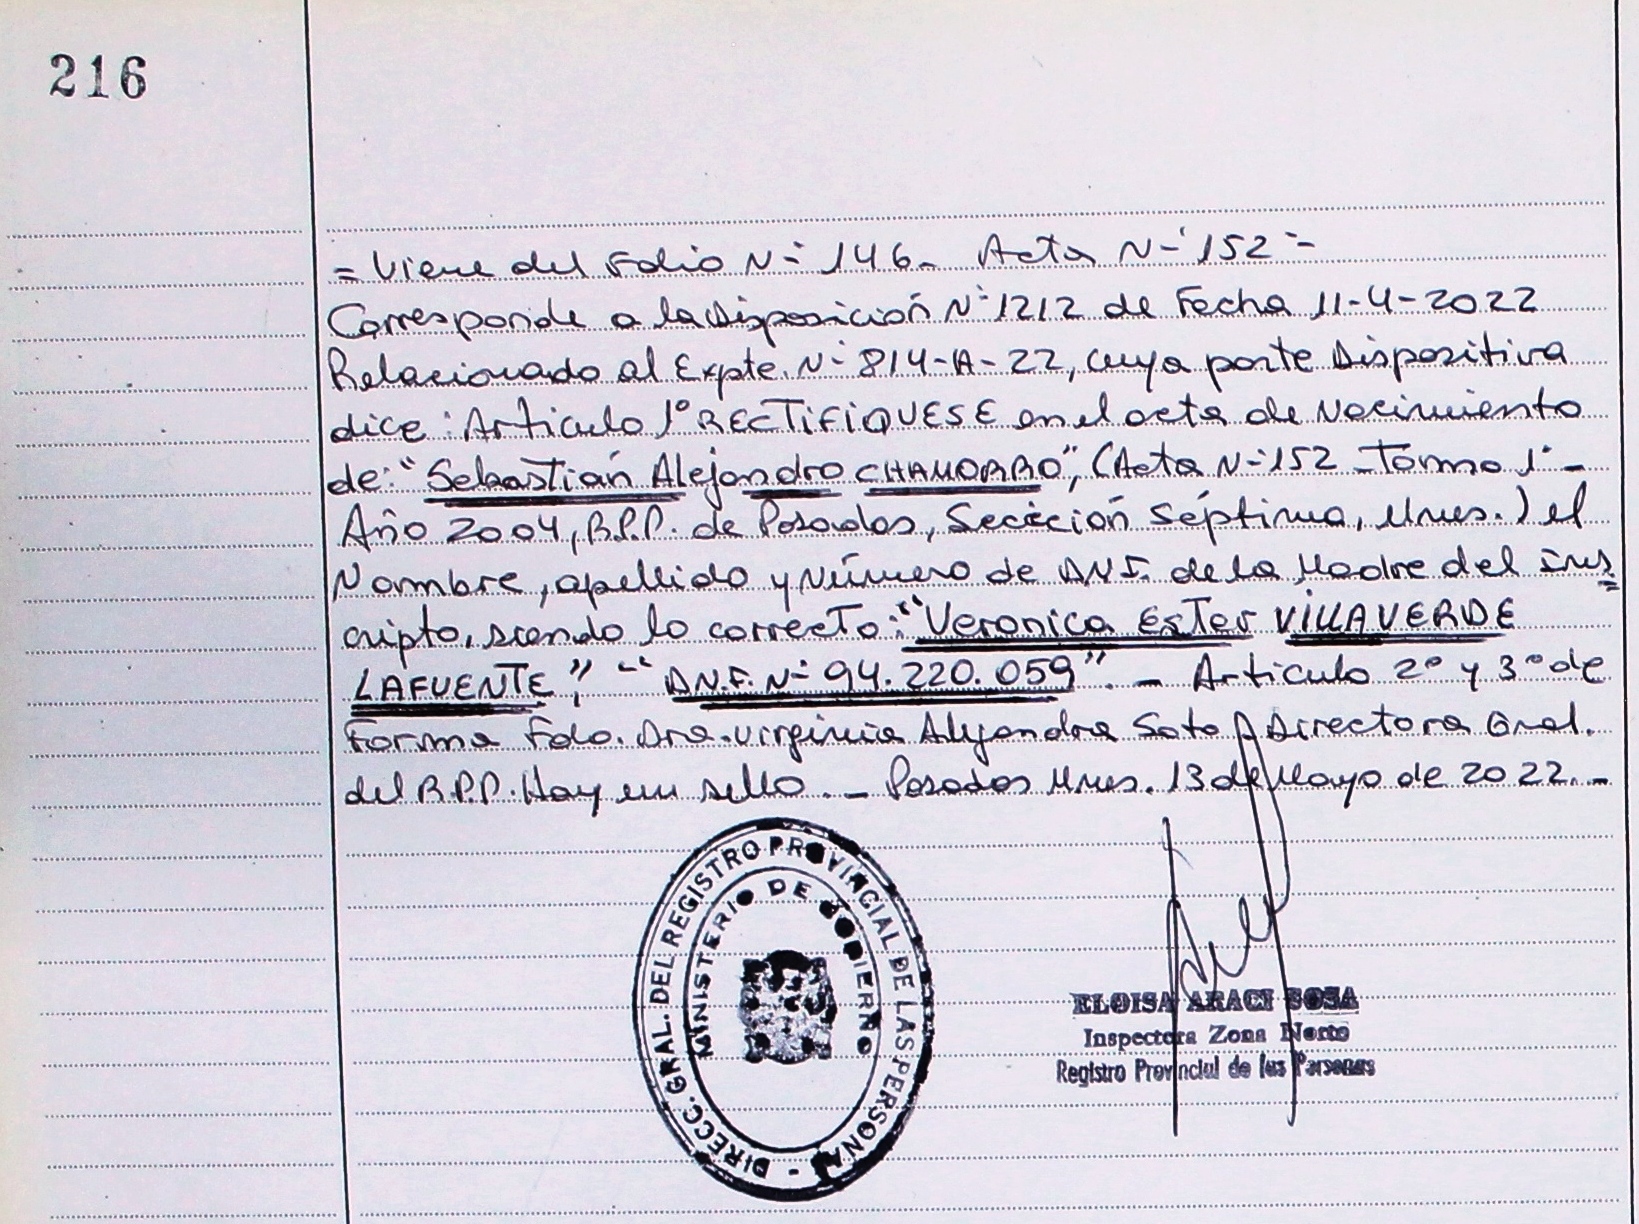 216
= Viene del Folio N- 146_ Acta N-' 152 -
Corresponde a la Disposición N- 1212 de Fecha 11-4-2022
Relacionado al Expte. N- 814-A-22, cuya parte Dispositiva
dice: Articulo 1º RECTIFIQUESE en el acta de Nacimiento
de: "Sebastián Alejandro CHAMORRO", (Acta N- 152 _ Tomo 1º _
Año 2004, R.P.P. de Posadas, Sección Séptima, Mnes.) el
Nombre, apellido y Número de D.N.I. de la Madre del ins=
cripto, siendo lo correcto: "Veronica Ester VILLAVERDE
LAFUENTE", "D.N.I. N- 94.220.059". _ Articulo 2º y 3º de
Forma Fdo. Dra. Virginia Alejandra Soto Directora Gral.
del R.P.P. Hay un sello. _ Posadas Mnes. 13 de Mayo de 2022. _
DIRECC. GRAL. DEL REGISTRO PROVINCIAL DE LAS PERSONAS -
MINISTERIO DE GOBIERNO
ELOISA ARACI SOSA
Inspectora Zona Norte
Registro Provincial de las Personas